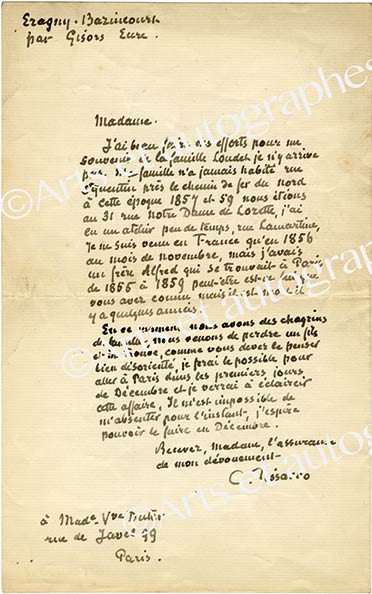 Eragny-Bazincourt
par Gisors Eure
Madame.
J'ai bien fait des efforts pour me
souvenir de la famille Loudet je n'y arrive
pas, ma famille n'a jamais habité rue
St Quentin près le chemin de fer du Nord
à cette époque 1857 et 59 nous étions
au 31 rue Notre Dame de Lorette, j'ai
eu un atelier peu de temps, rue Lamartine,
Je ne suis venu en France qu'en 1856
au mois de novembre, mais j'avais
un frère Alfred qui se trouvait à Paris
de 1855 à 1859 peut-être est-ce lui que
vous avez connu mais il est mort il
y a quelques années.
En ce moment nous avons des chagrins
de famille, nous venons de perdre un fils
et me trouve, comme vous devez le penser
bien désorienté, je ferai le possible pour
aller à Paris dans les premiers jours
de Décembre et je verrai à éclaircir
cette affaire, Il m'est impossible de
m'absenter pour l'instant, j'espère
pouvoir le faire en Décembre.
Recevez, Madame, l'assurance
de mon dévouement
C. Pissarro
à Made Vve
rue de Javel 99
Paris.
©Arts et autographes